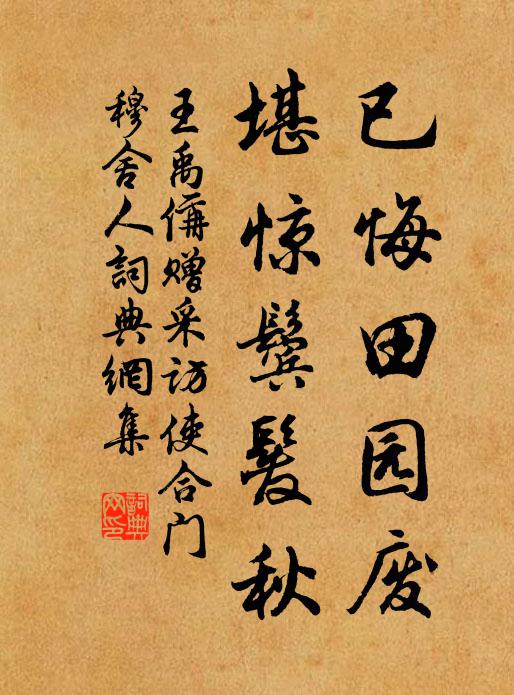 已悔田园废
堪惊鬓髮秋
王禹偁赠采访使合门
穆舍人詞典網集
詞典
网印